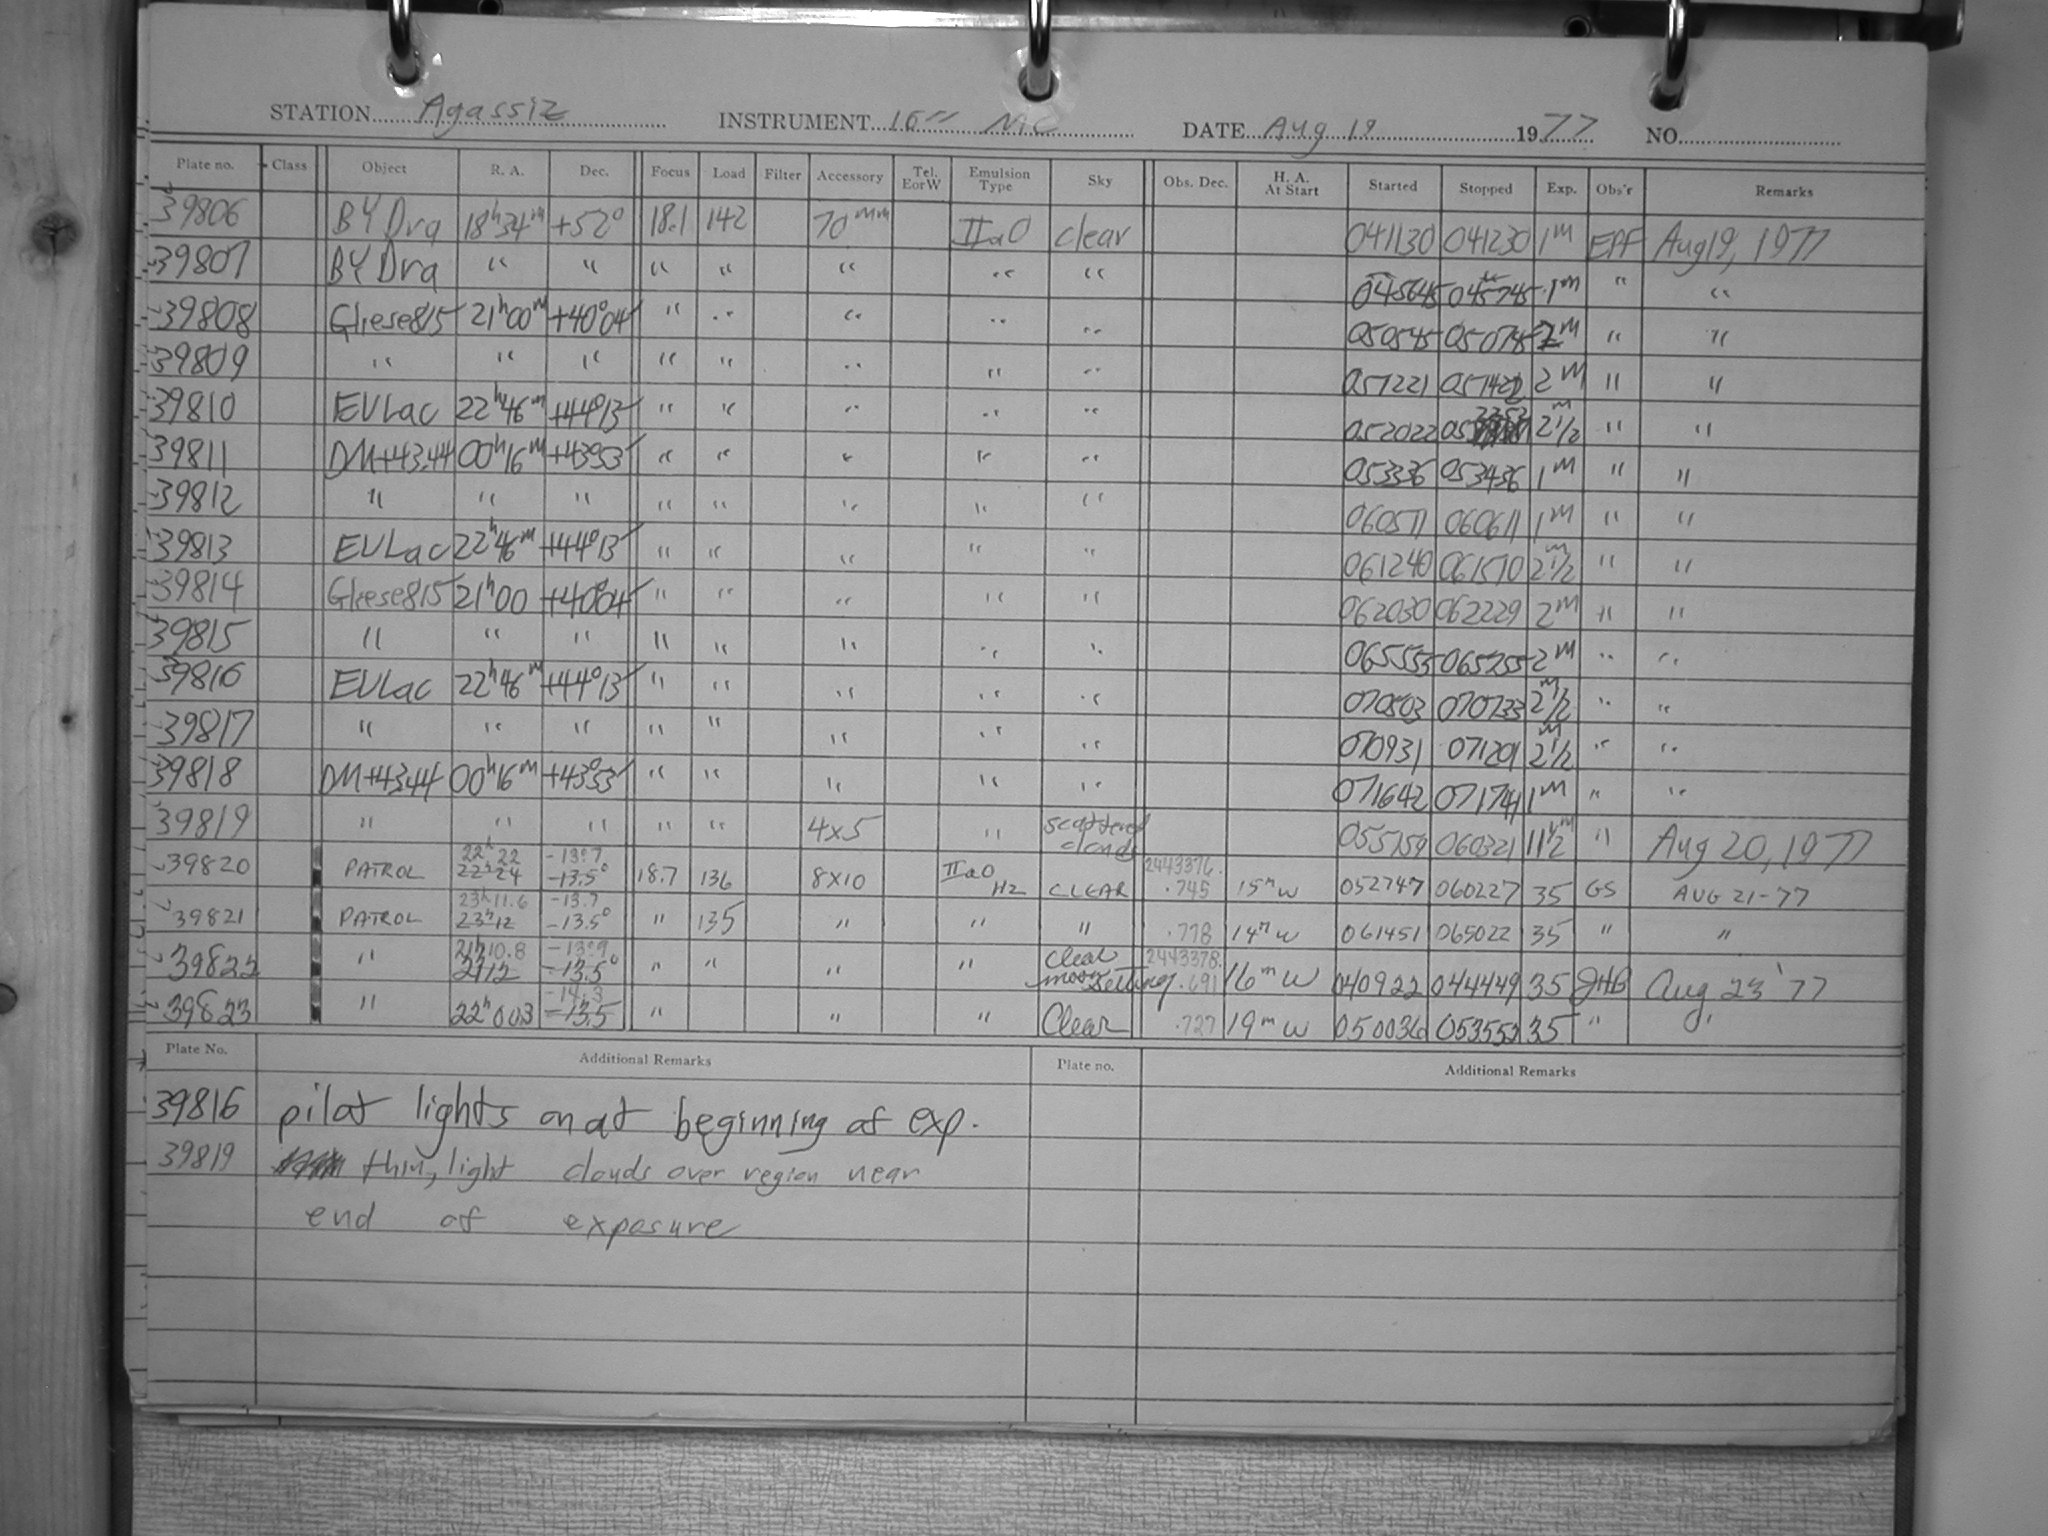 STATION Agassiz INSTRUMENT 16" MC DATE Aug 19 1977 NO.
Plate no. Class Object R. A. Dec. Focus Load Filter Accessory Tel. EorW Emulsion Type Sky Obs. Dec. H. A. At Start Started Stopped Exp. Obs'r Remarks
39806 BY Dra 18h34m +52° 18.1 142 70mm IIaO clear 041130 041230 1m EPF Aug19, 1977
39807 BY Dra " " " " " " " 045645 045745 1m " "
39808 Gliese815 21h00m +40°04 " " " " " 050545 050745 2m " "
39809 " " " " " " " " 051221 051421 2m " "
39810 EVLac 22h46m +44°13 " " " " " 052022 2 1/2m " "
39811 DM+43.44 00h16m +43°53 " " " " " 053336 053436 1m " "
39812 " " " " " " " " 060511 060611 1m " "
39813 EVLac 22h46m +44°13 " " " " " 061240 061510 2 1/2m " "
39814 Gliese815 21h00 +40°04 " " " " " 062030 062229 2m " "
39815 " " " " " " " " 065553 065755 2m " "
39816 EVLac 22h46m +44°13 " " " " " 070503 070733 2 1/2m " "
39817 " " " " " " " " 070931 071201 2 1/2m " "
39818 DM+43.44 00h16m +43°53 " " " " " 071642 071741 1m " "
39819 " " " " " 4x5 " scattered clouds 055159 060321 11 1/2m " Aug 20, 1977
39820 PATROL 22h22 22h24 -13°.7 -13.5° 18.7 136 8X10 IIaO H2 CLEAR 2443376.745 15m W 052747 060227 35 GS AUG 21-77
39821 PATROL 23h11.6 23h12 -13.7 -13.5° " 135 " " " .778 14m W 061451 065022 35 " "
39822 " 21h10.8 2112 -13°.9 -13.5° " " " " Clear moon setting 2443378.691 16m W 040922 044449 35 JHB Aug 23 '77
39823 " 22h00.3 -14.3 -13.5 " " " Clear .727 19m W 050036 053553 35 " "
Plate No. Additional Remarks Plate no. Additional Remarks
39816 pilot lights on at beginning of exp.
39819 thin, light clouds over region near
end of exposure